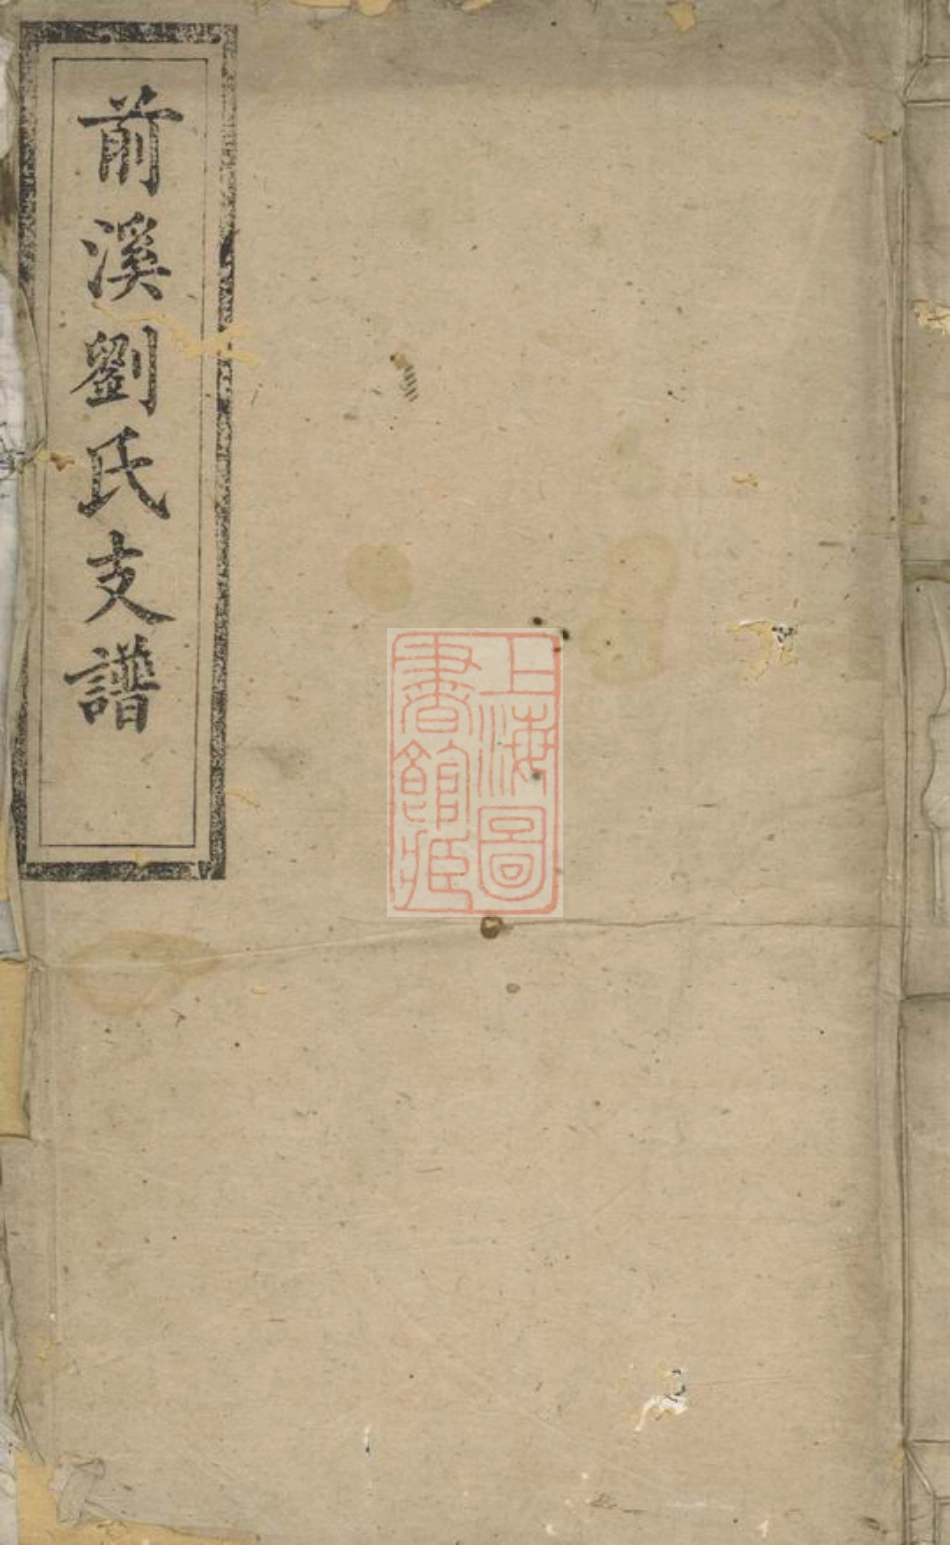 前溪劉氏支譜
上海圖
書館藏